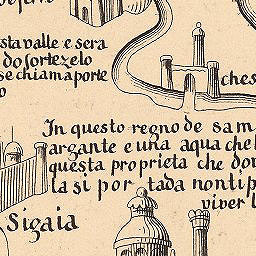 sta valle e sera
do fortezelo
se chiama porte
o
ches
In questo regno de sam
argante e una aqua che l
questa proprieta che don
la si por tada non ti p
viver l
Sigaia